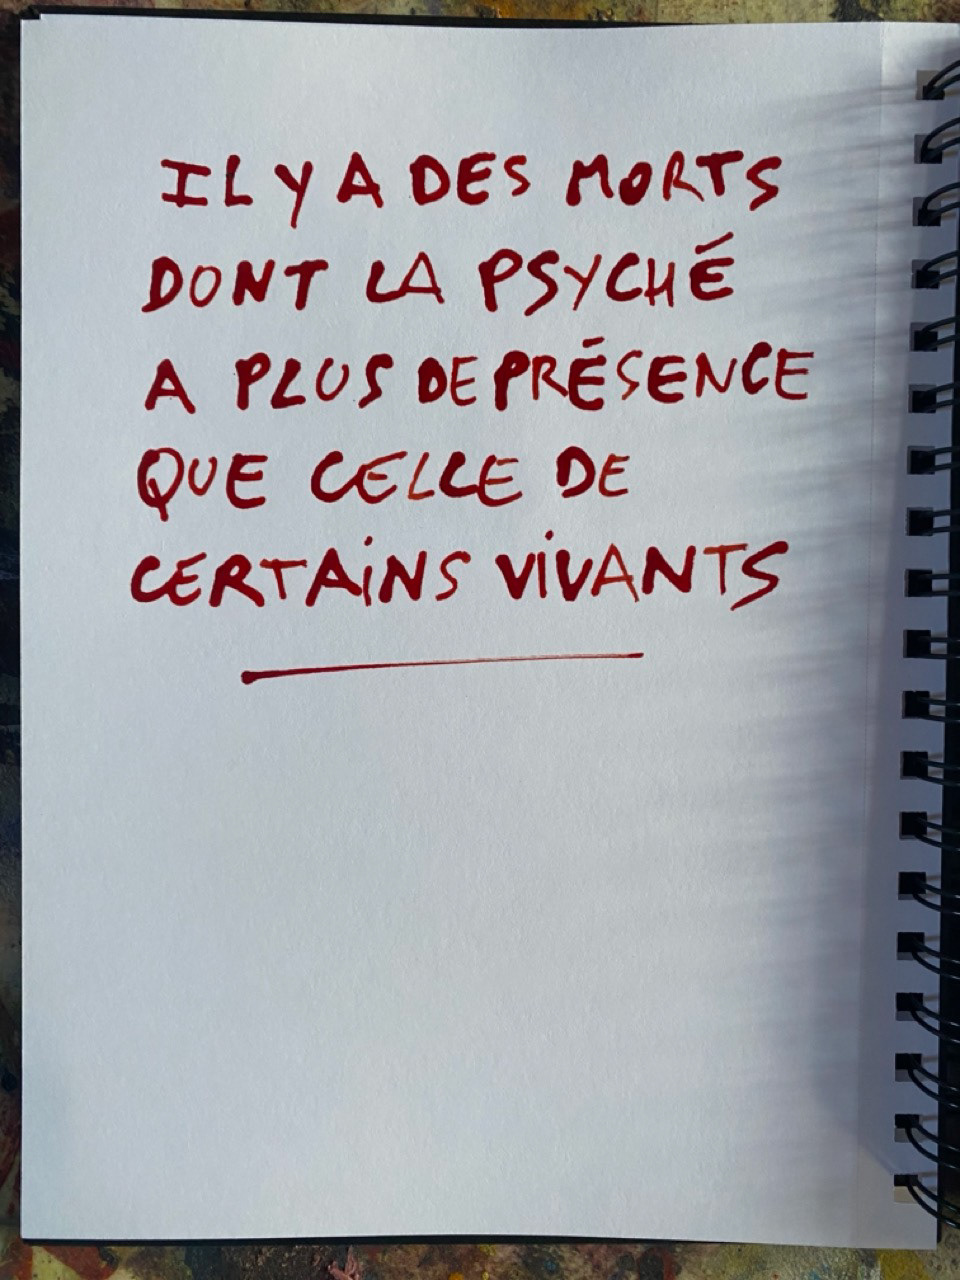 IL Y A DES MORTS
DONT LA PSYCHÉ
A PLUS DE PRÉSENCE
QUE CELLE DE
CERTAINS VIVANTS